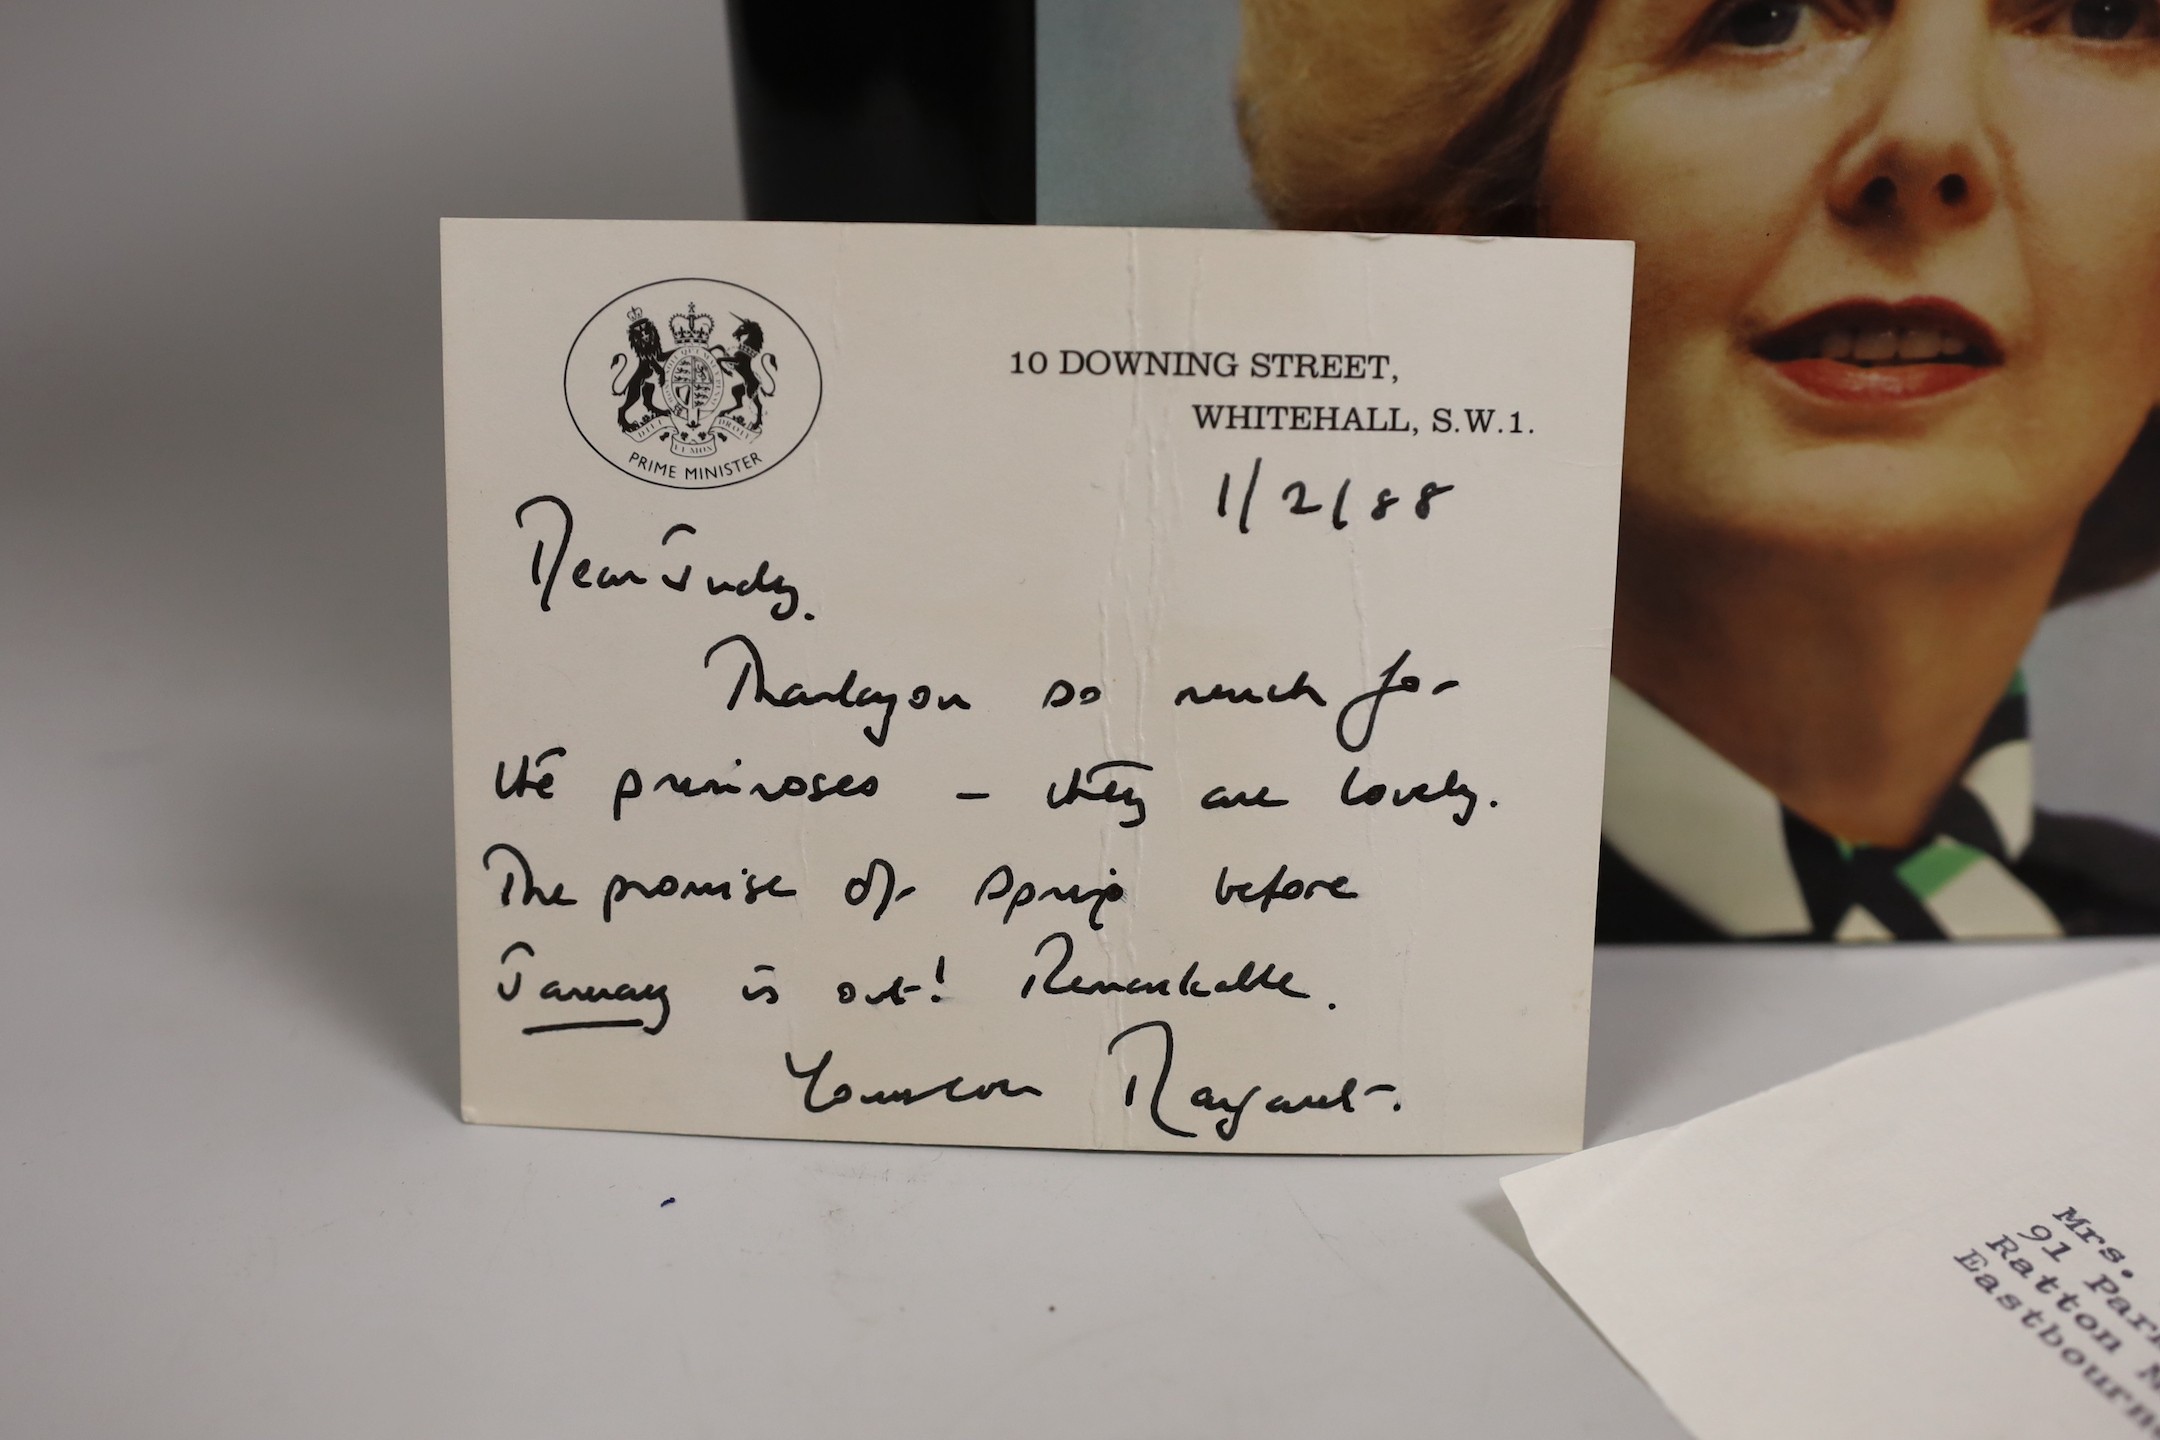 PRIME MINISTER
10 DOWNING STREET,
WHITEHALL, S.W.1.
1/2/88
Dear Judy.
Thankyou so much for
the primroses – they are lovely.
The promise of spring before
January is out! Remarkable.
Yours ever Margaret.
Mrs.
91 Par
Ratton
Eastbourn